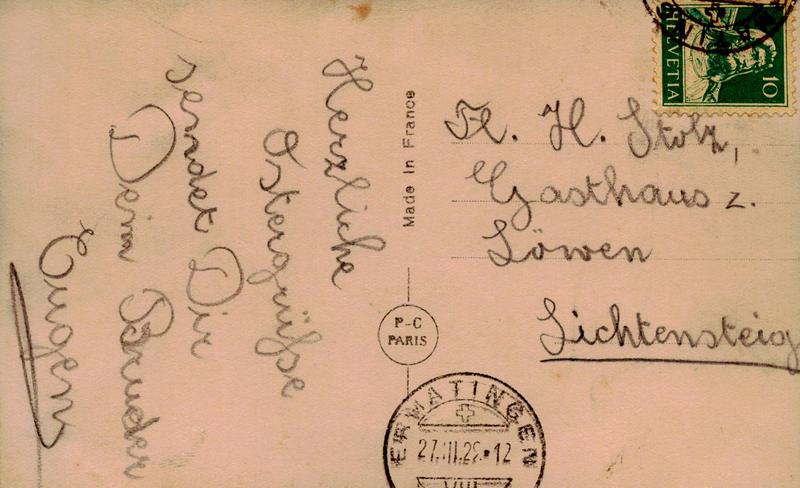 Herzliche
Ostergrüsse
sendet Dir
Dein Bruder
Eugen
Made In France
P-C
PARIS
HELVETIA
10
Frl. H. Stolz,
Gasthaus z.
Löwen
Lichtensteig
ERMATINGEN
27.III.28·12
VIII